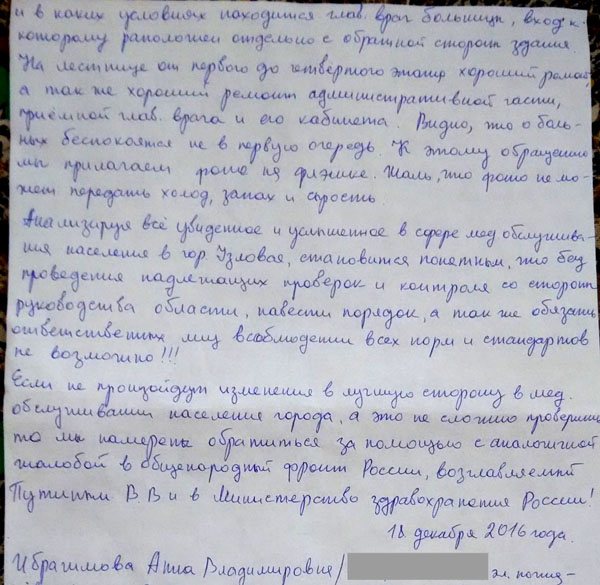 и в каких условиях находится глав. врач больницы, вход к
которому раположен отдельно с обратной стороны здания.
На лестнице от первого до четвертого этажа хороший ремонт,
а так же хороший ремонт административной части,
приёмной глав. врача и его кабинета. Видно, что о боль-
ных беспокоятся не в первую очередь. К этому обращению
мы прилагаем фото на флэшке. Жаль, что фото не мо-
жет передать холод, запах и сырость.
Анализируя всё увиденное и услышенное в сфере мед обслужива-
ния населения в гор. Узловая, становится понетным, что без
проведения надлежащих проверок и контроля со стороны
руководства области, навести порядок, а так же обязать
ответственных лиц в соблюдении всех норм и стандартов
не возможно!!!
Если не произойдут изменения в лучшую сторону в мед.
обслуживании населения города, а это не сложно проверить,
то мы намерены обратиться за помощью с аналогичной
жалобой в общенородный фронт России, возглавляемый
Путиным В В и в Министерство здравохранения России!
18 декабря 2016 года.
Ибрагимова Анна Владимировне/ эл. почта-